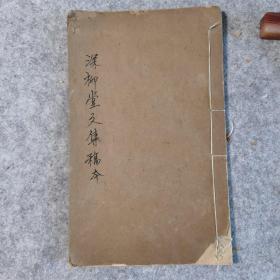 深柳堂文集稿本